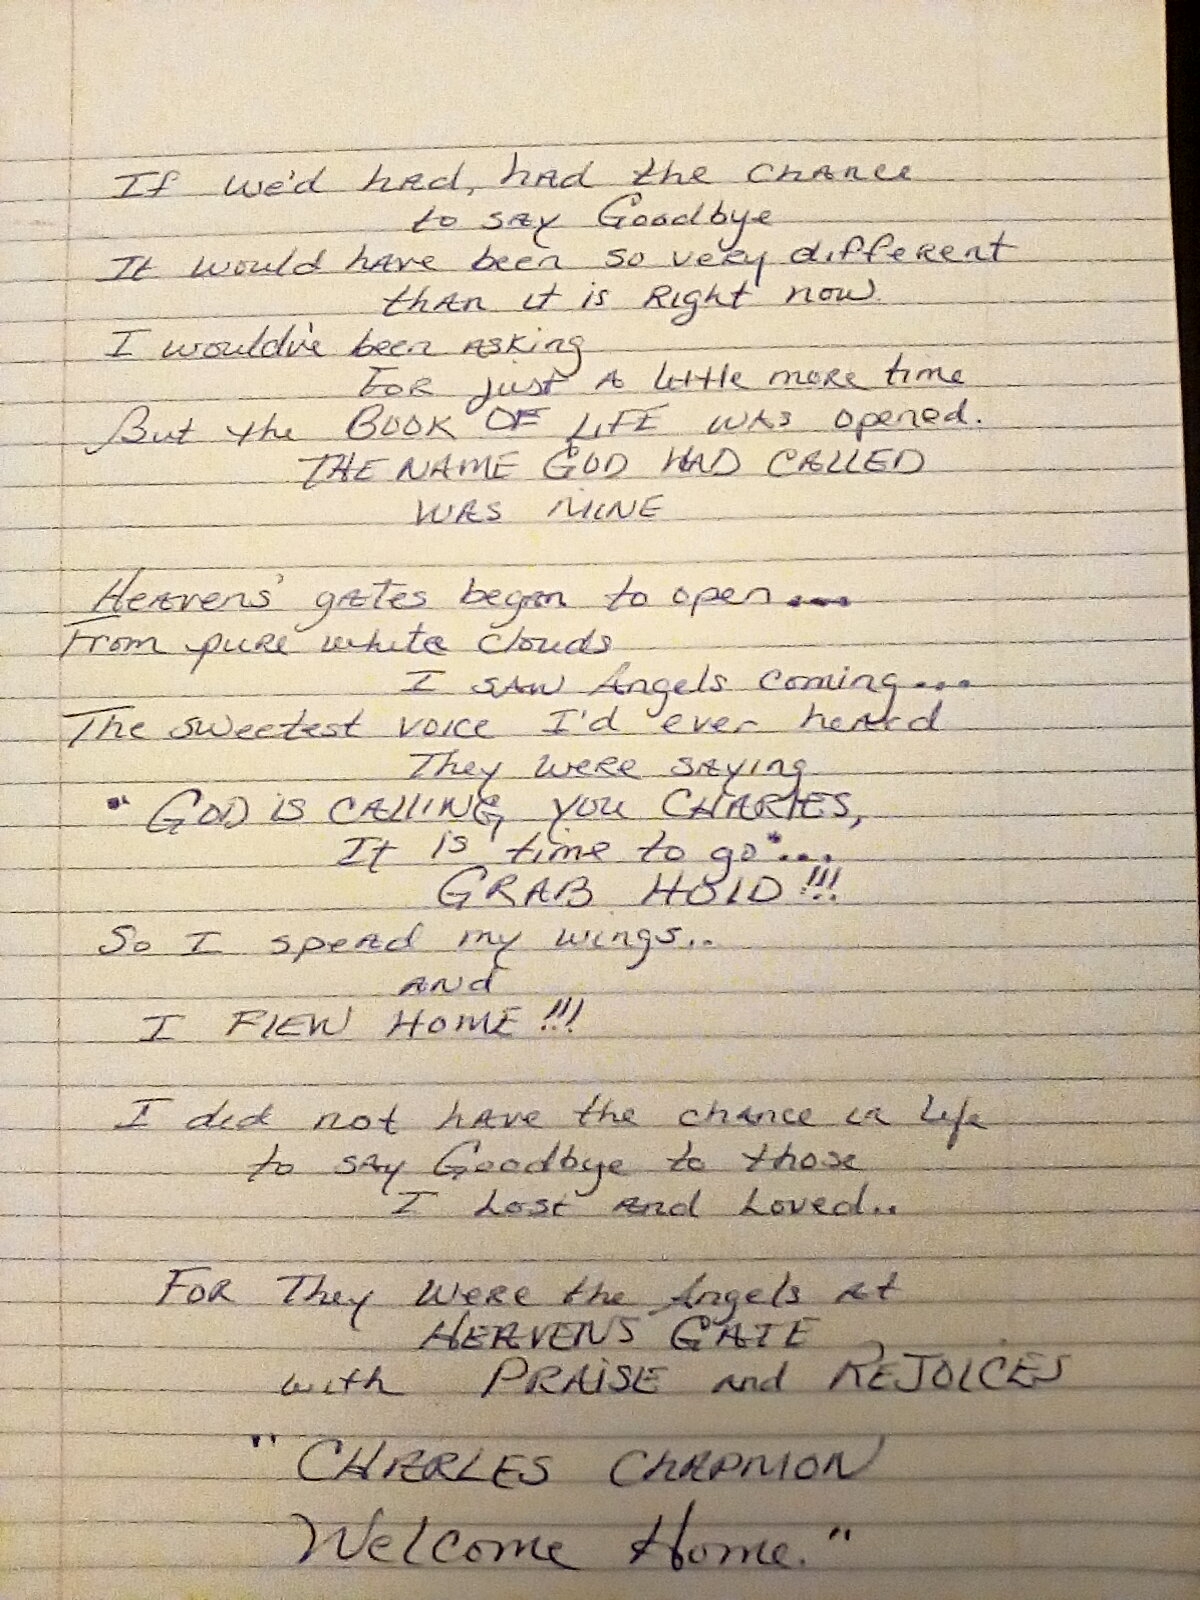 If we'd had, had the chance
to say Goodbye
It would have been so very different
than it is Right now.
I would've been asking
For just a little more time
But the BOOK OF LIFE was opened.
THE NAME GOD HAD CALLED
WAS MINE
Heavens' gates began to open...
From pure white clouds
I saw Angels coming...
The sweetest voice I'd ever heard
They were saying
"GOD IS CALLING YOU CHARLES,
It is time to go"...
GRAB HOLD!!!
So I spead my wings..
AND
I FLEW HOME!!!
I did not have the chance in Life
to say Goodbye to those
I Lost and Loved..
FOR They Were the Angels at
HEAVENS GATE
with PRAISE and REJOICES
"CHARLES CHAPMON
Welcome Home."